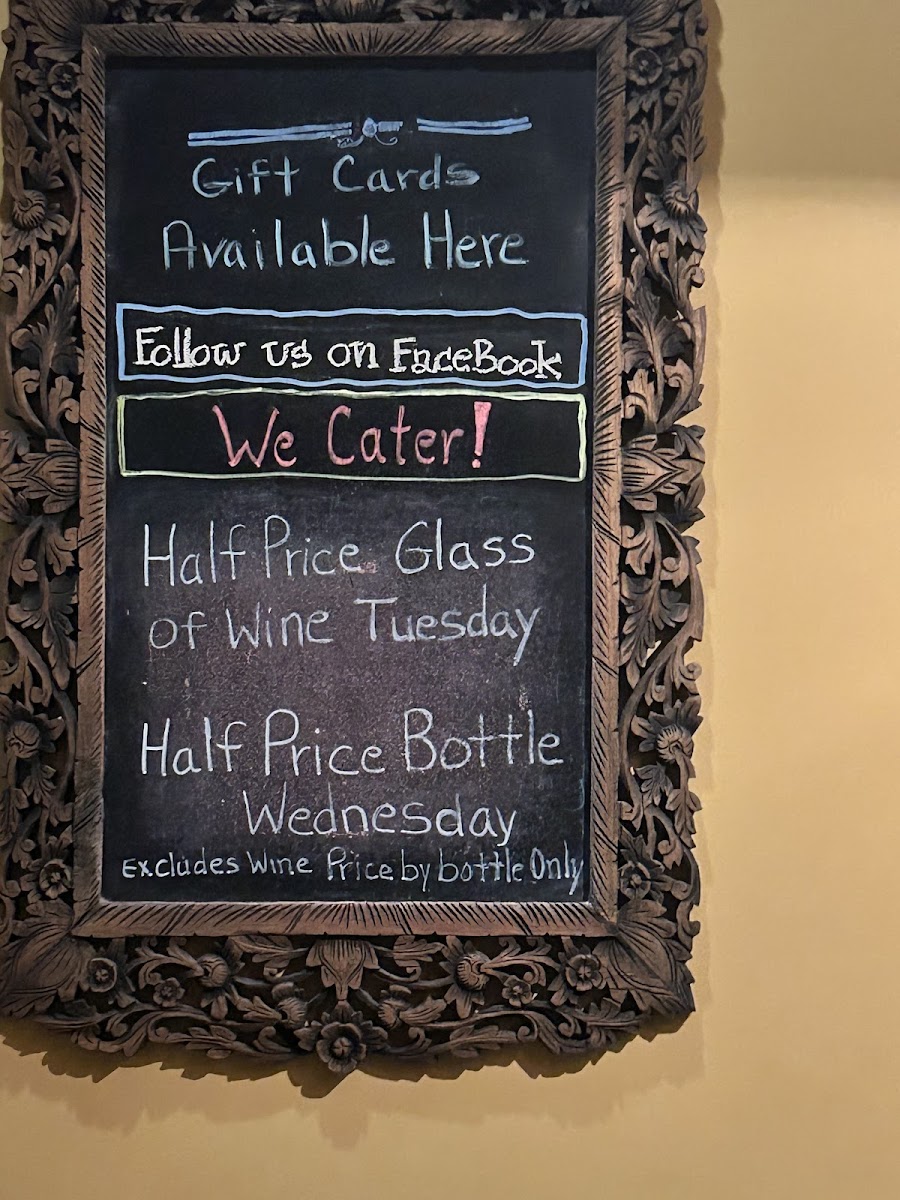 Gift Cards
Available Here
Follow us on FaceBook
We Cater!
Half Price Glass
of Wine Tuesday
Half Price Bottle
Wednesday
Excludes Wine Price by bottle Only